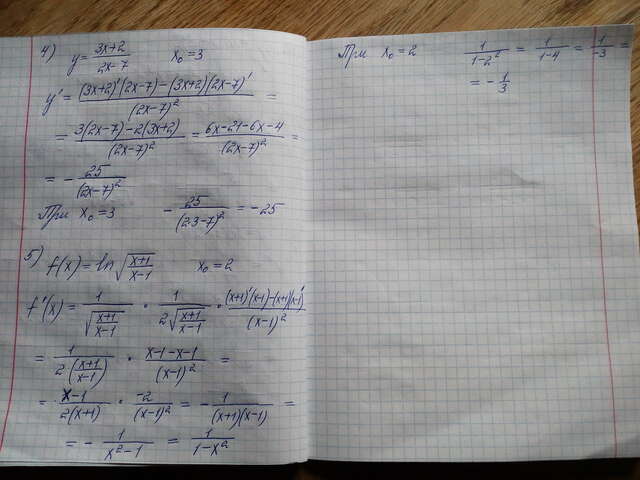 4) y = (3x+2)/(2x-7) x₀=3
y' = ((3x+2)'(2x-7)-(3x+2)(2x-7)')/(2x-7)² =
= (3(2x-7)-2(3x+2))/(2x-7)² = (6x-21-6x-4)/(2x-7)² =
= - 25/(2x-7)²
При x₀=3 - 25/(2·3-7)² = -25
5) f(x) = ln√((x+1)/(x-1)) x₀=2
f'(x) = 1/√((x+1)/(x-1)) · 1/(2√((x+1)/(x-1))) · ((x+1)'(x-1)-(x+1)(x-1)')/(x-1)²
= 1/(2((x+1)/(x-1))) · (x-1-x-1)/(x-1)² =
= (x-1)/(2(x+1)) · (-2)/(x-1)² = - 1/((x+1)(x-1)) =
= - 1/(x²-1) = 1/(1-x²)
При x₀=2 1/(1-2²) = 1/(1-4) = 1/(-3) =
= - 1/3